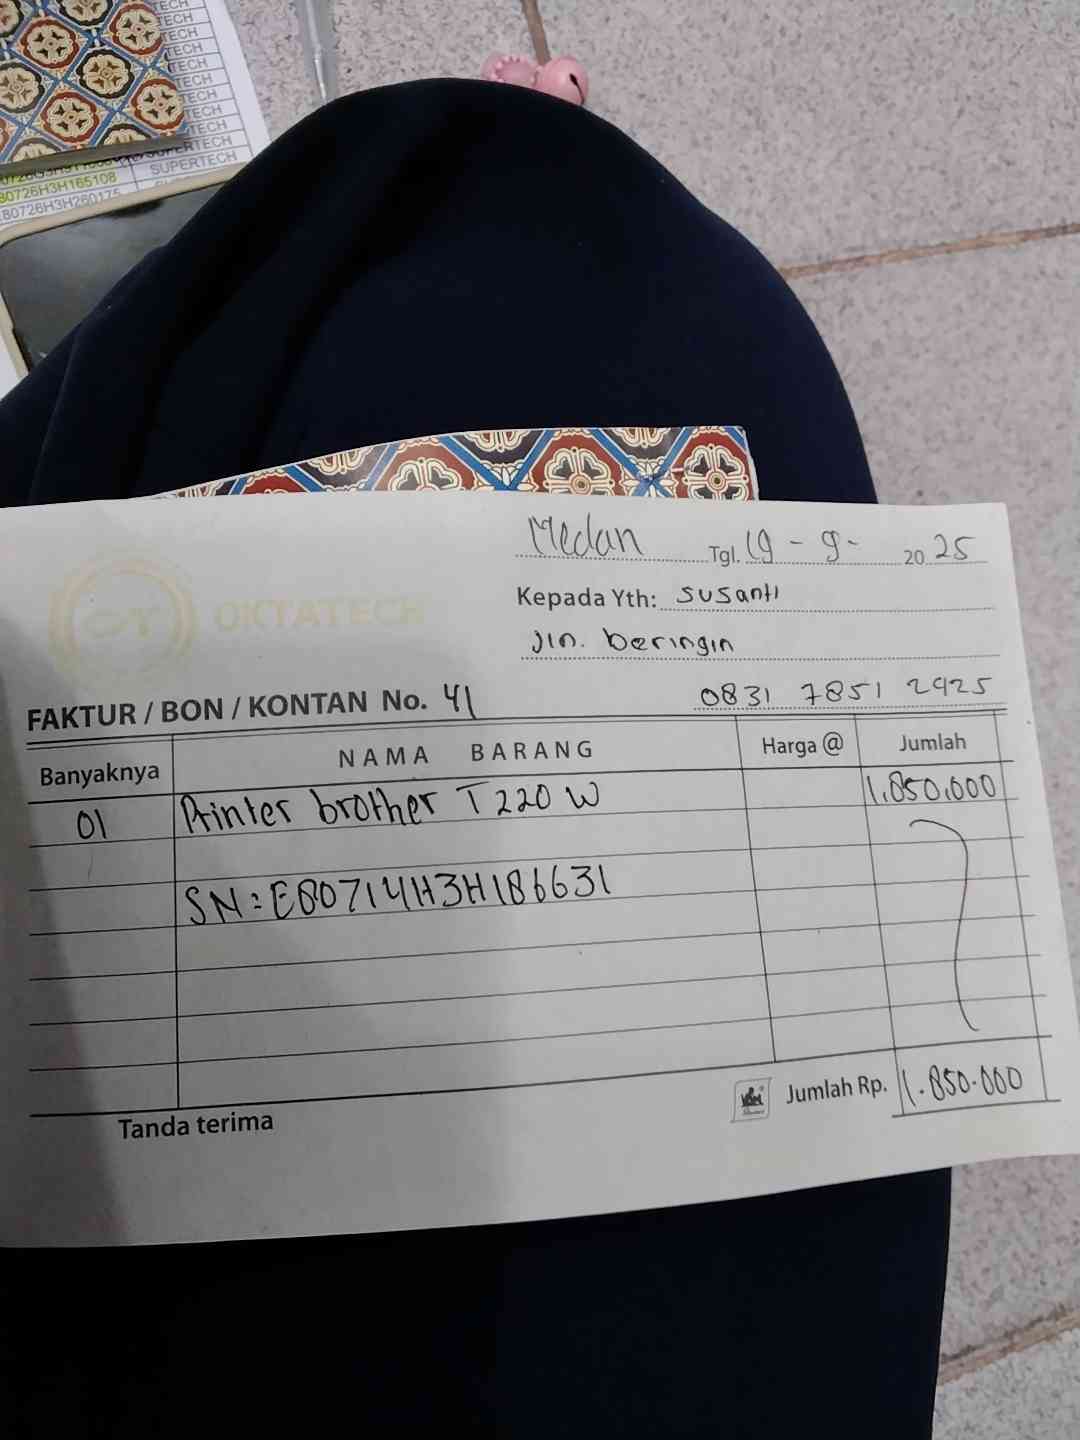 TECH
TECH
TECH
TECH
TECH
TECH
TECH
TECH
TECH
SUPERTECH
80726H3H165108 SUPERTECH
80726H3H280175
OKTATECH
Medan Tgl. 19 - 9 - 20 25
Kepada Yth: Susanti
Jln. beringin
0831 7851 2925
FAKTUR / BON / KONTAN No. 41
Banyaknya NAMA BARANG Harga @ Jumlah
01 Printer brother T220W 1.850.000
SN: E80714H3H186631
Jumlah Rp. 1.850.000
Tanda terima